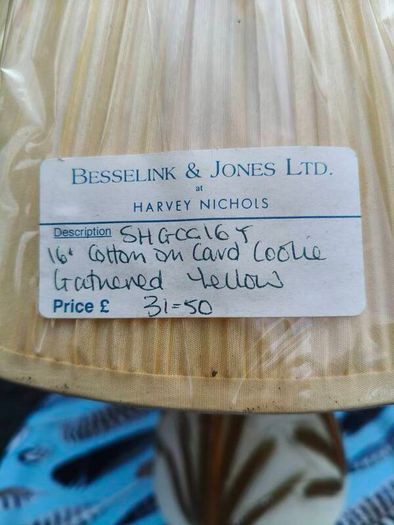 BESSELINK & JONES LTD.
at
HARVEY NICHOLS
Description SHGCC16Y
16" Cotton on Card Coolie
Gathered Yellow
Price £ 31=50